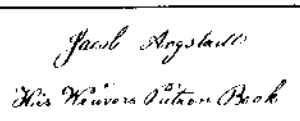 Jacob Angstadt
His Weavers Patron Book